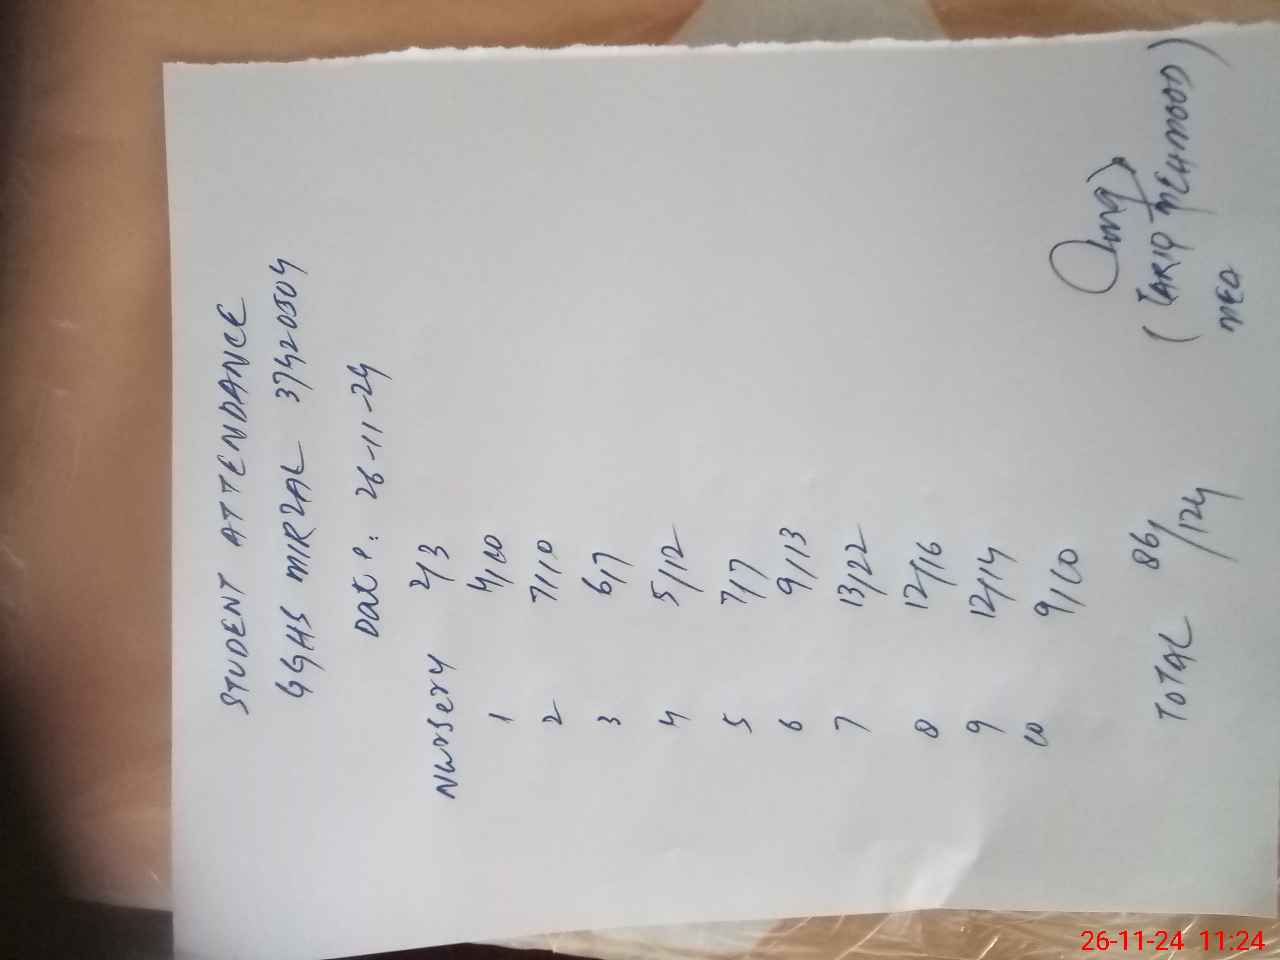 STUDENT ATTENDANCE
GGHS MIRZAL 37420504
Date: 26-11-24
Nursery 2/3
1 4/10
2 7/10
3 6/7
4 5/12
5 7/7
6 9/13
7 13/22
8 12/16
9 12/14
10 9/10
TOTAL 86/124
(TARIQ MEHMOOD)
MEA
26-11-24 11:24